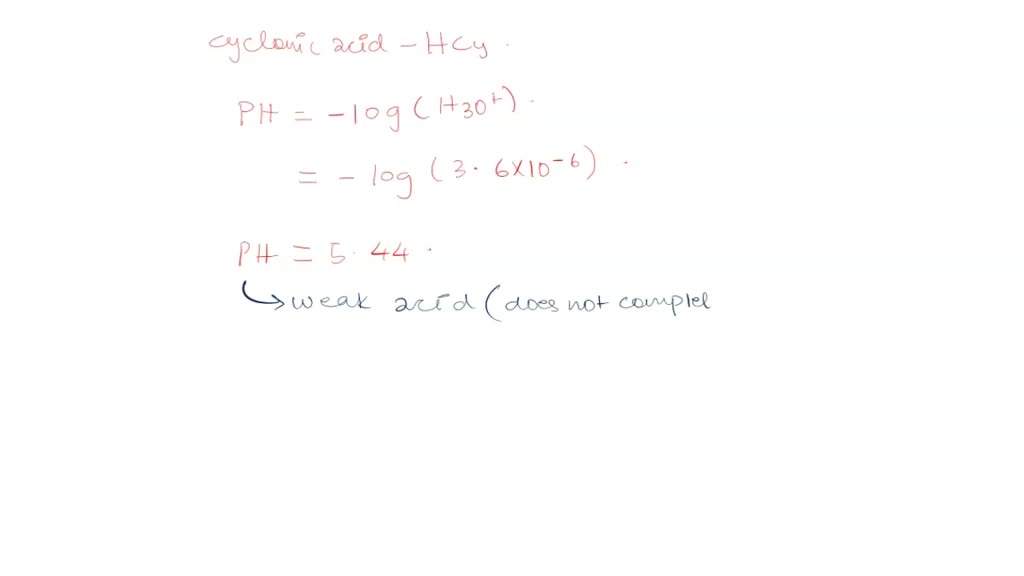 cyclonic acid - HCy.
PH = -log(H30+).
= -log(3.6X10-6).
PH = 5.44.
weak acid (does not complel